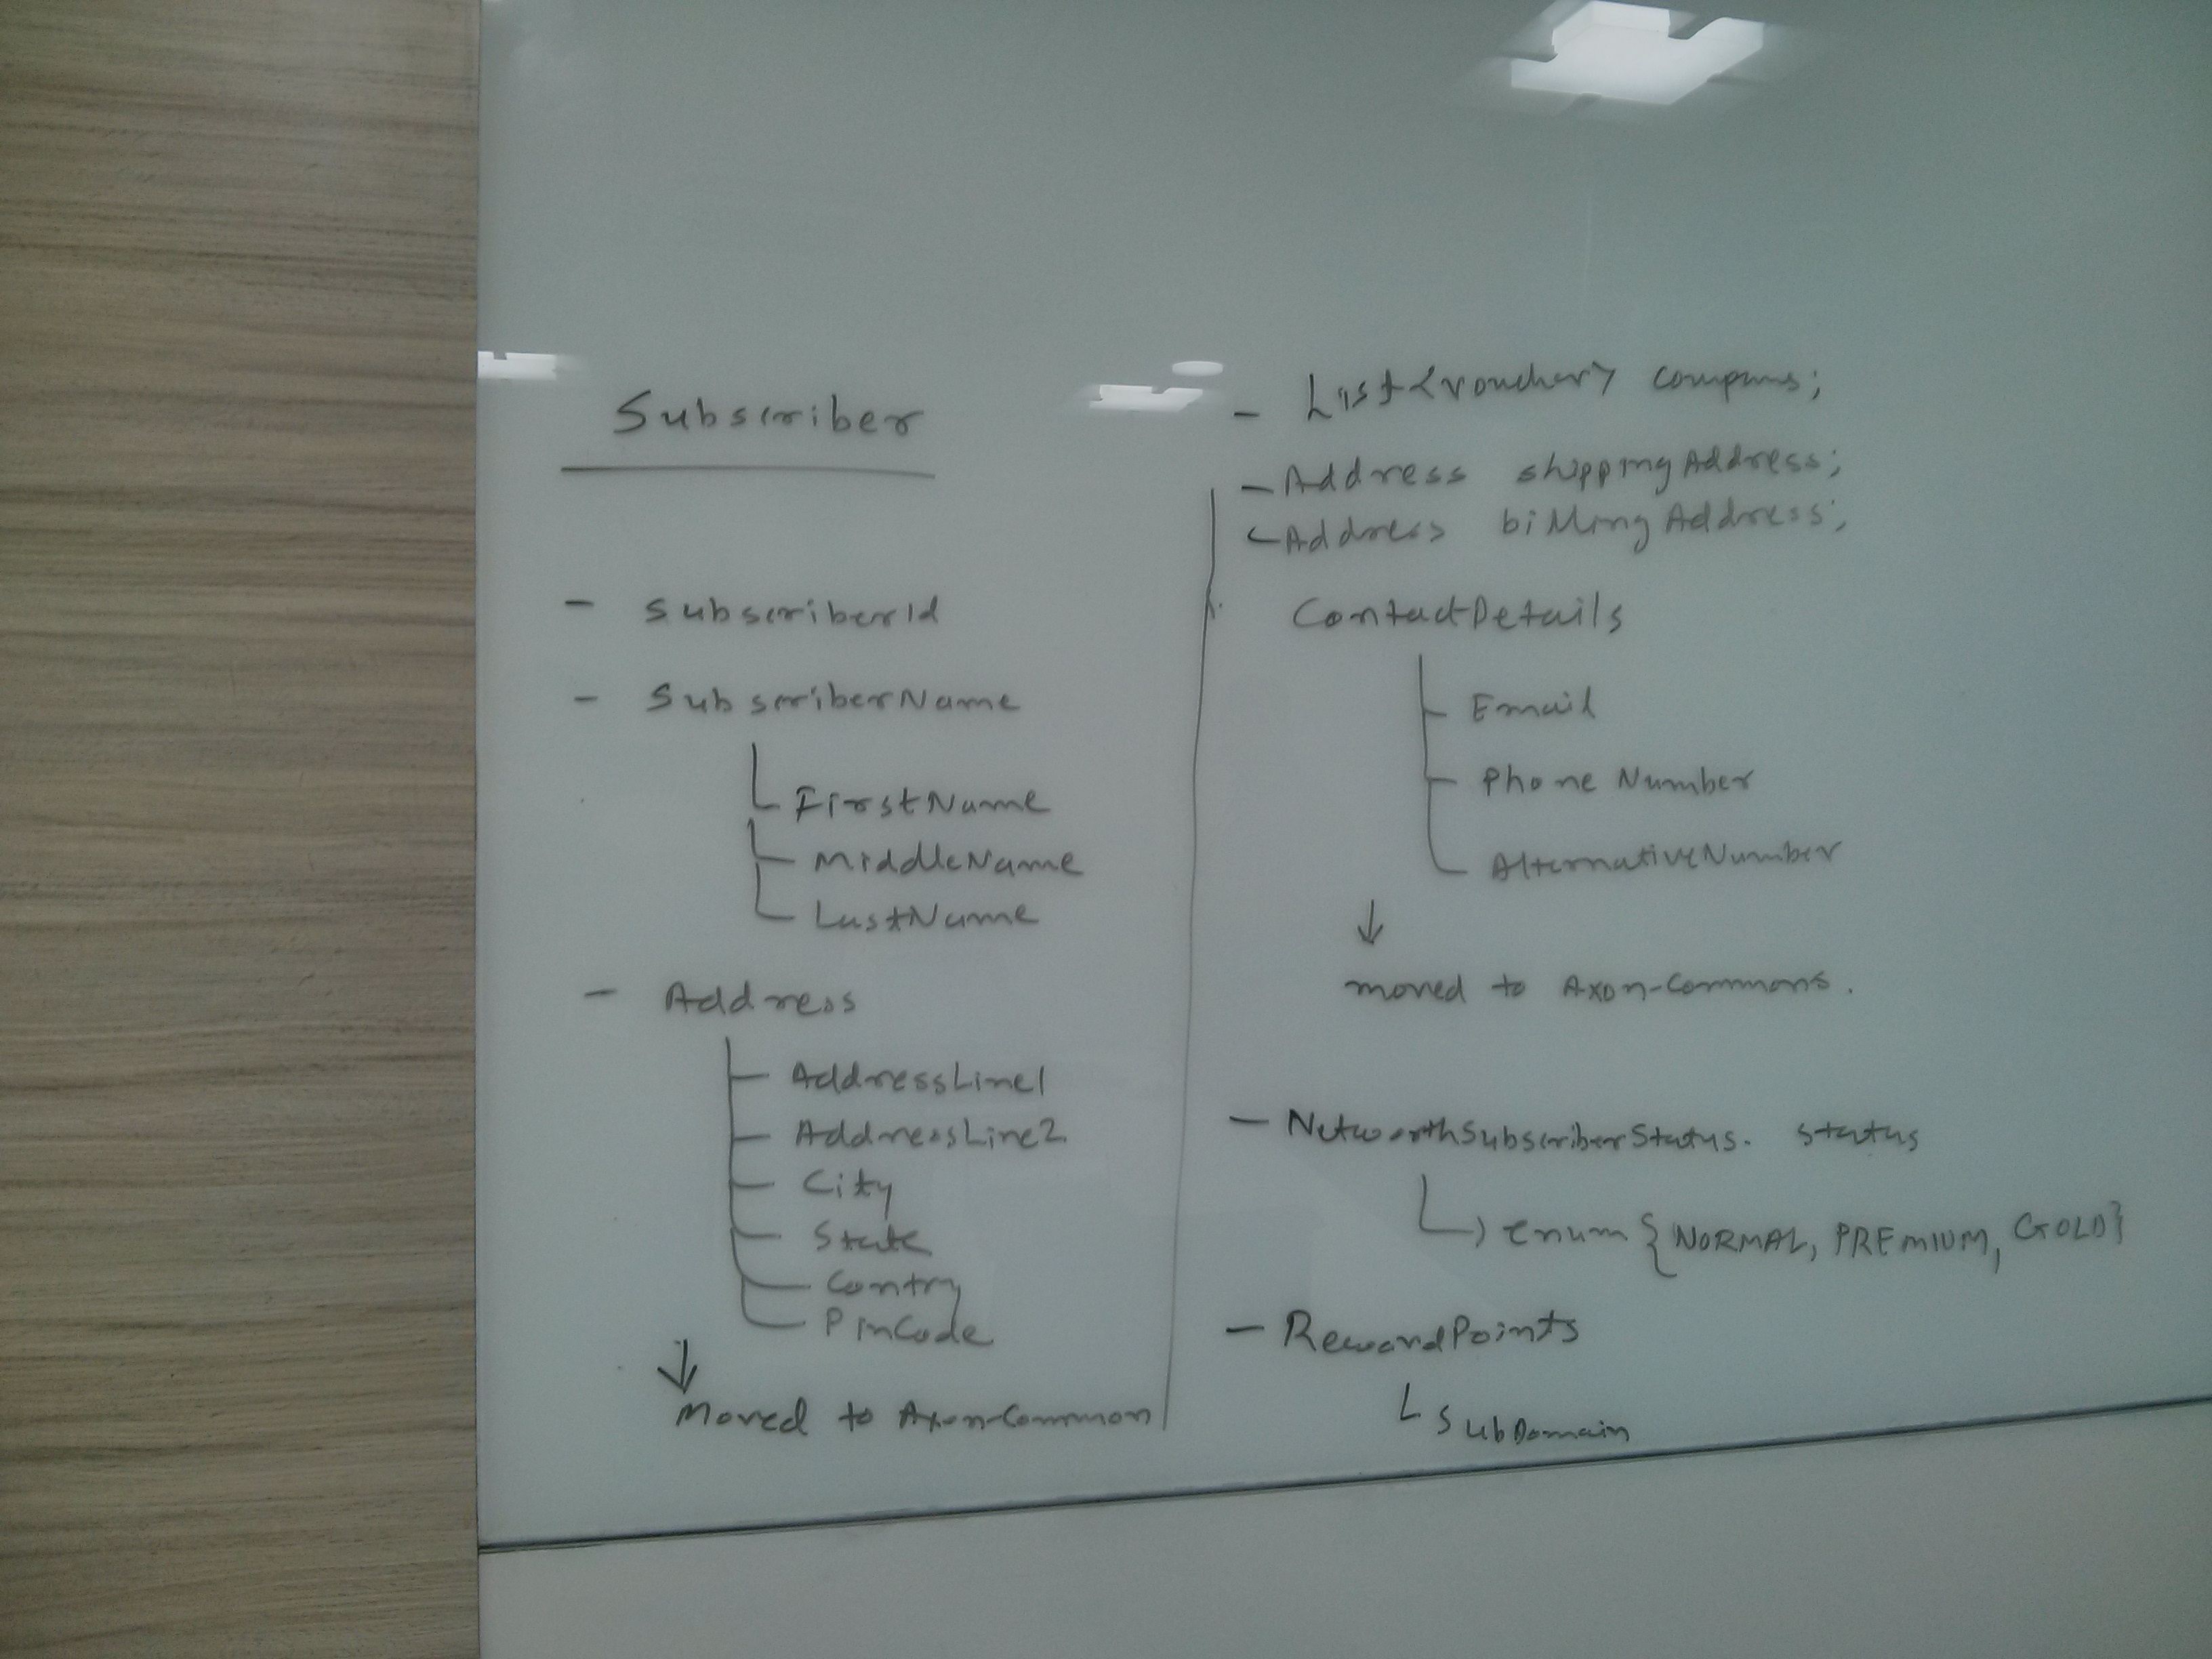 Subscriber
- SubscriberId
- SubscriberName
FirstName
MiddleName
LastName
- Address
AddressLine1
AddressLine2
City
State
Contry
PinCode
↓
Moved to Axon-Common
- List<voucher> coupons;
- Address shippingAddress;
- Address billingAddress;
ContactDetails
Email
Phone Number
AlternativeNumber
↓
moved to Axon-Commons.
- NetworthSubscriberStatus. status
enum {NORMAL, PREMIUM, GOLD}
- RewardPoints
SubDomain